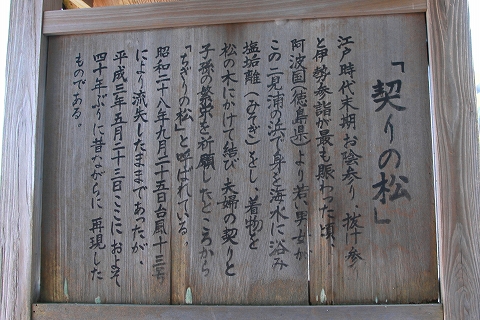 「契りの松」
江戸時代末期、お陰参り、抜け参
と伊勢参詣が最も賑わった頃、
阿波国(徳島県)より若い男女が
この二見浦の浜で身を海水に浴み
塩垢離(みそぎ)をし、着物を
松の木にかけて結び夫婦の契りと
子孫の繁栄を祈願したところから
「ちぎりの松」と呼ばれている。
昭和二十八年九月二十五日台風十三号
により流失したままであったが、
平成三年五月二十三日ここに およそ
四十年ぶりに昔ながらに 再現した
ものである。